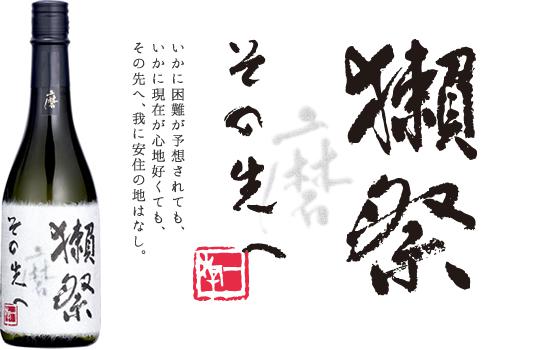 獺祭
磨
その先へ
いかに困難が予想されても、
いかに現在が心地好くても、
その先へ、我に安住の地はなし。
磨
獺祭
磨
その先へ